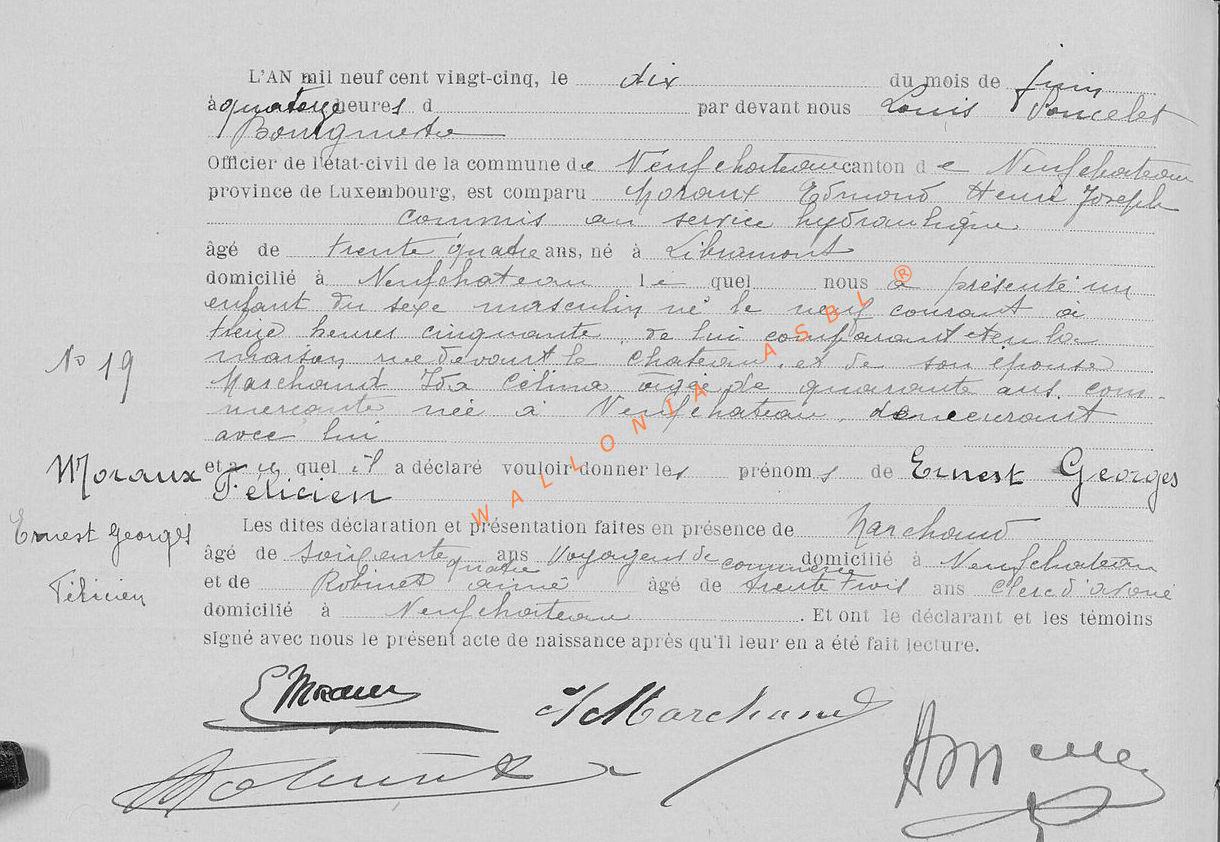 L'AN mil neuf cent vingt-cinq, le dix du mois de juin
à quatorze heures d par devant nous Louis Poncelet
Bourgmestre
Officier de l'état-civil de la commune de Neufchateau canton de Neufchateau
province de Luxembourg, est comparu Moraux Edmond Henri Joseph
commis au service hydraulique
âgé de trente quatre ans, né à Libramont
domicilié à Neufchateau le quel nous a présenté un
enfant du sexe masculin né le neuf courant à
treize heures cinquante, de lui comparant et en la
maison rue devant le chateau, et de son épouse
Marchand Ida Célina agée de quarante ans, com-
mercante née à Neufchateau, demeurant
avec lui
No 19
et a u quel il a déclaré vouloir donner les prénoms de Ernest Georges
Félicien
Moraux
Ernest Georges
Félicien
Les dites déclaration et présentation faites en présence de Marchand
âgé de soixante quatre ans voyageur de commerce domicilié à Neufchateau
et de Robinet aimé âgé de trente trois ans clerc d'avoué
domicilié à Neufchateau . Et ont le déclarant et les témoins
signé avec nous le présent acte de naissance après qu'il leur en a été fait lecture.
E Moraux
Marchand
Robinet
WALLONIA ASBL ®